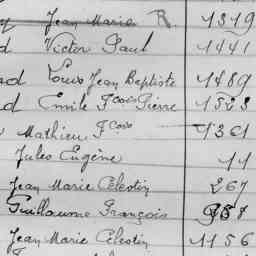 Jean Marie R 1319
d Victor Paul 1441
ad Louis Jean Baptiste 1489
d Emile Fcois Pierre 1523
Mathieu Fcois 1361
Jules Eugène 11
Jean Marie Célestin 267
Guillaume François
Jean Marie Célestin 1156